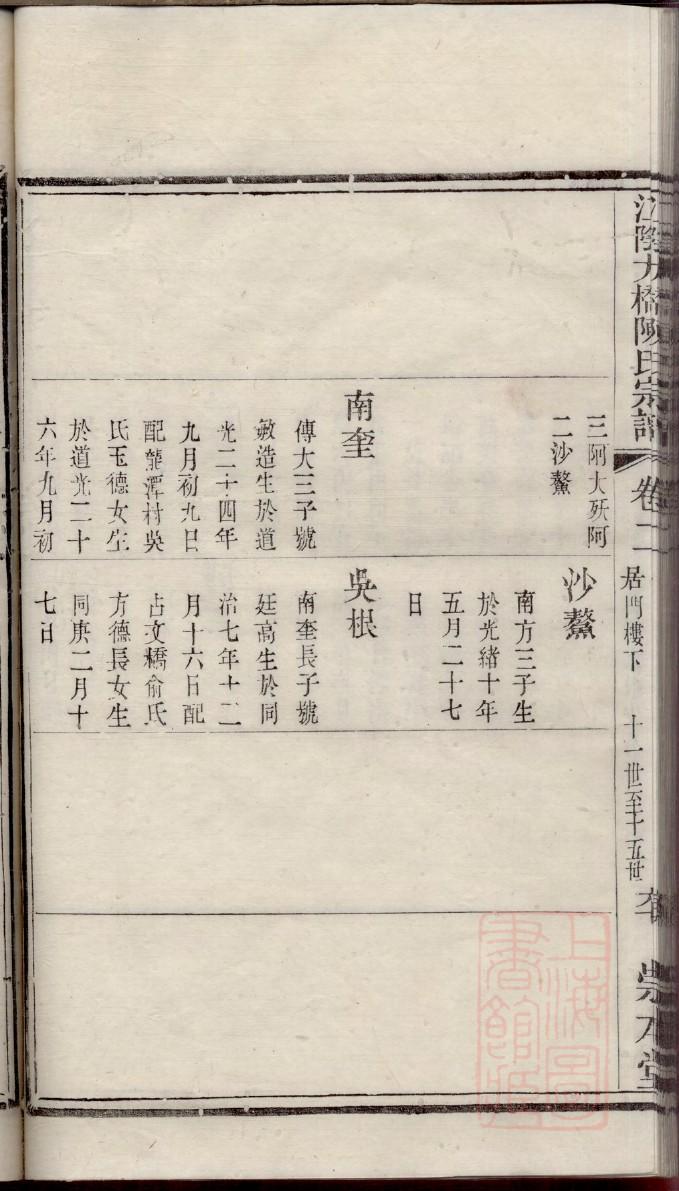 江陰九橋陳氏宗譜
卷二
居門樓下
十一世至十五世
崇本堂
三阿大殀阿
二沙鰲
南奎
傳大三子號
敏造生於道
光二十四年
九月初九日
配龍潭村吳
氏玉德女生
於道光二十
六年九月初
沙鰲
南方三子生
於光緒十年
五月二十七
日
吳根
南奎長子號
廷高生於同
治七年十二
月十六日配
占文橋俞氏
方德長女生
同庚二月十
七日
上海圖
書館藏